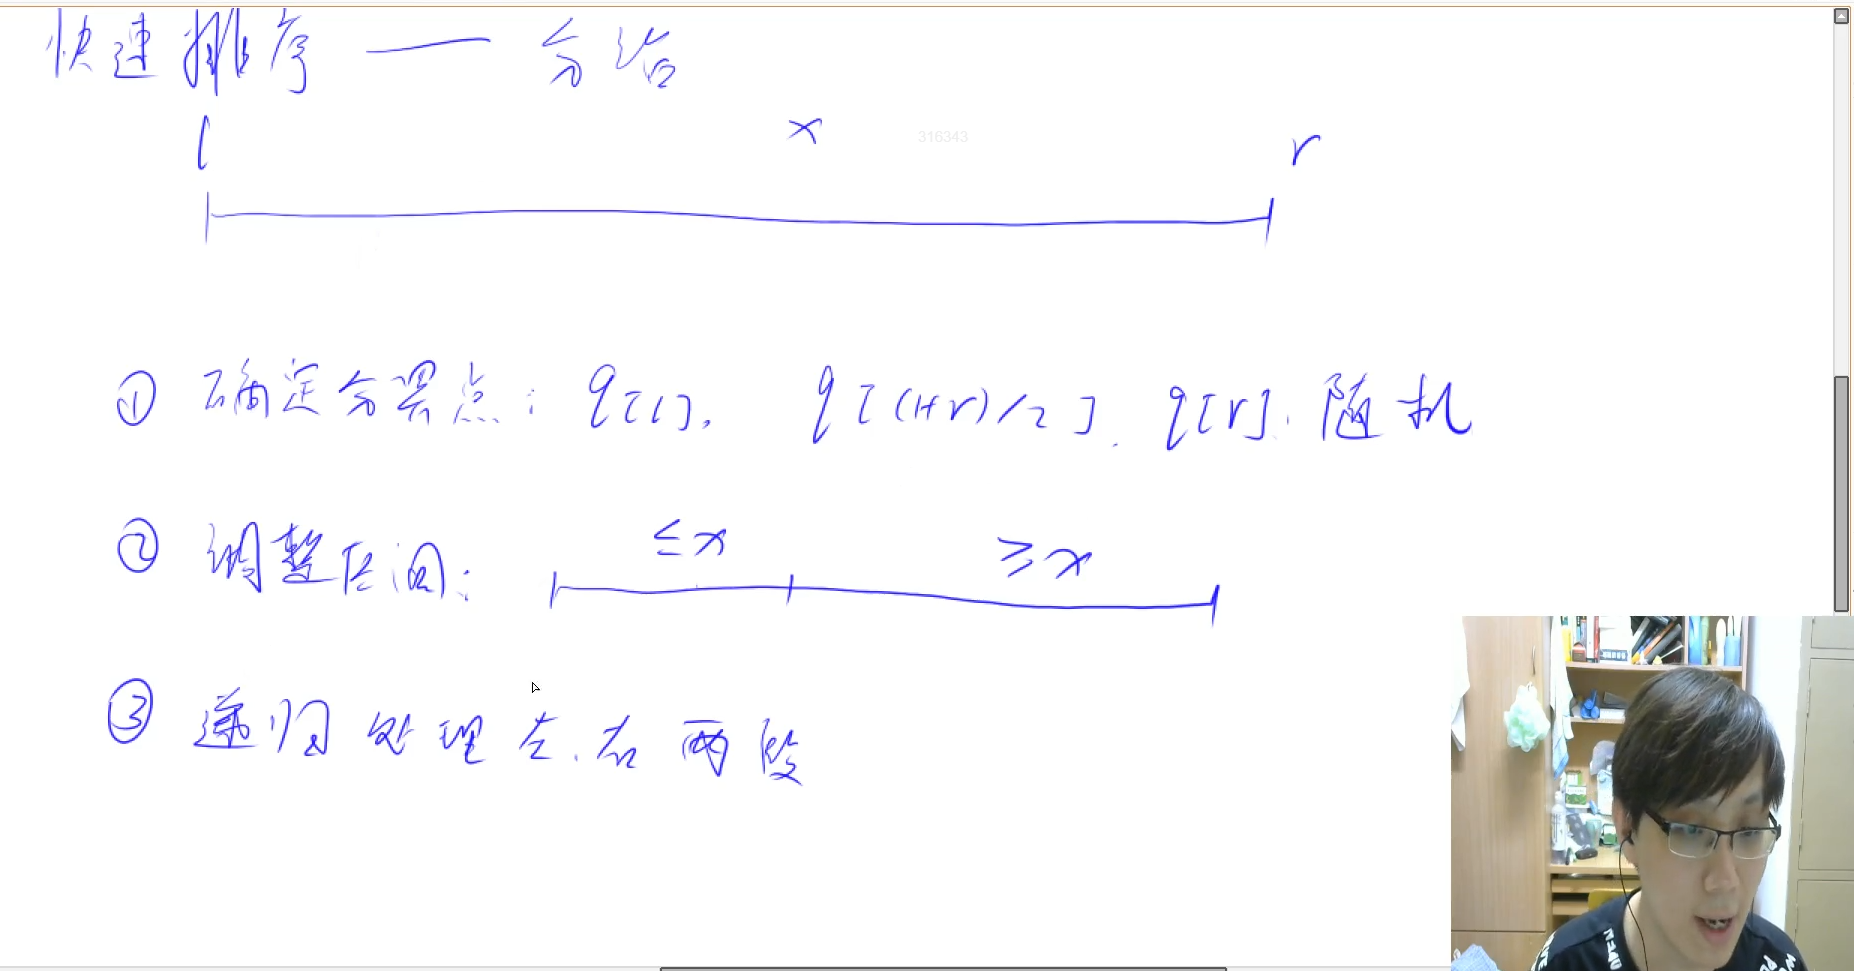 快速排序 —— 分治
l x r
316343
① 确定分界点: q[l], q[(l+r)/2], q[r], 随机
② 调整区间: ≤x ≥x
③ 递归 处理 左、右 两段